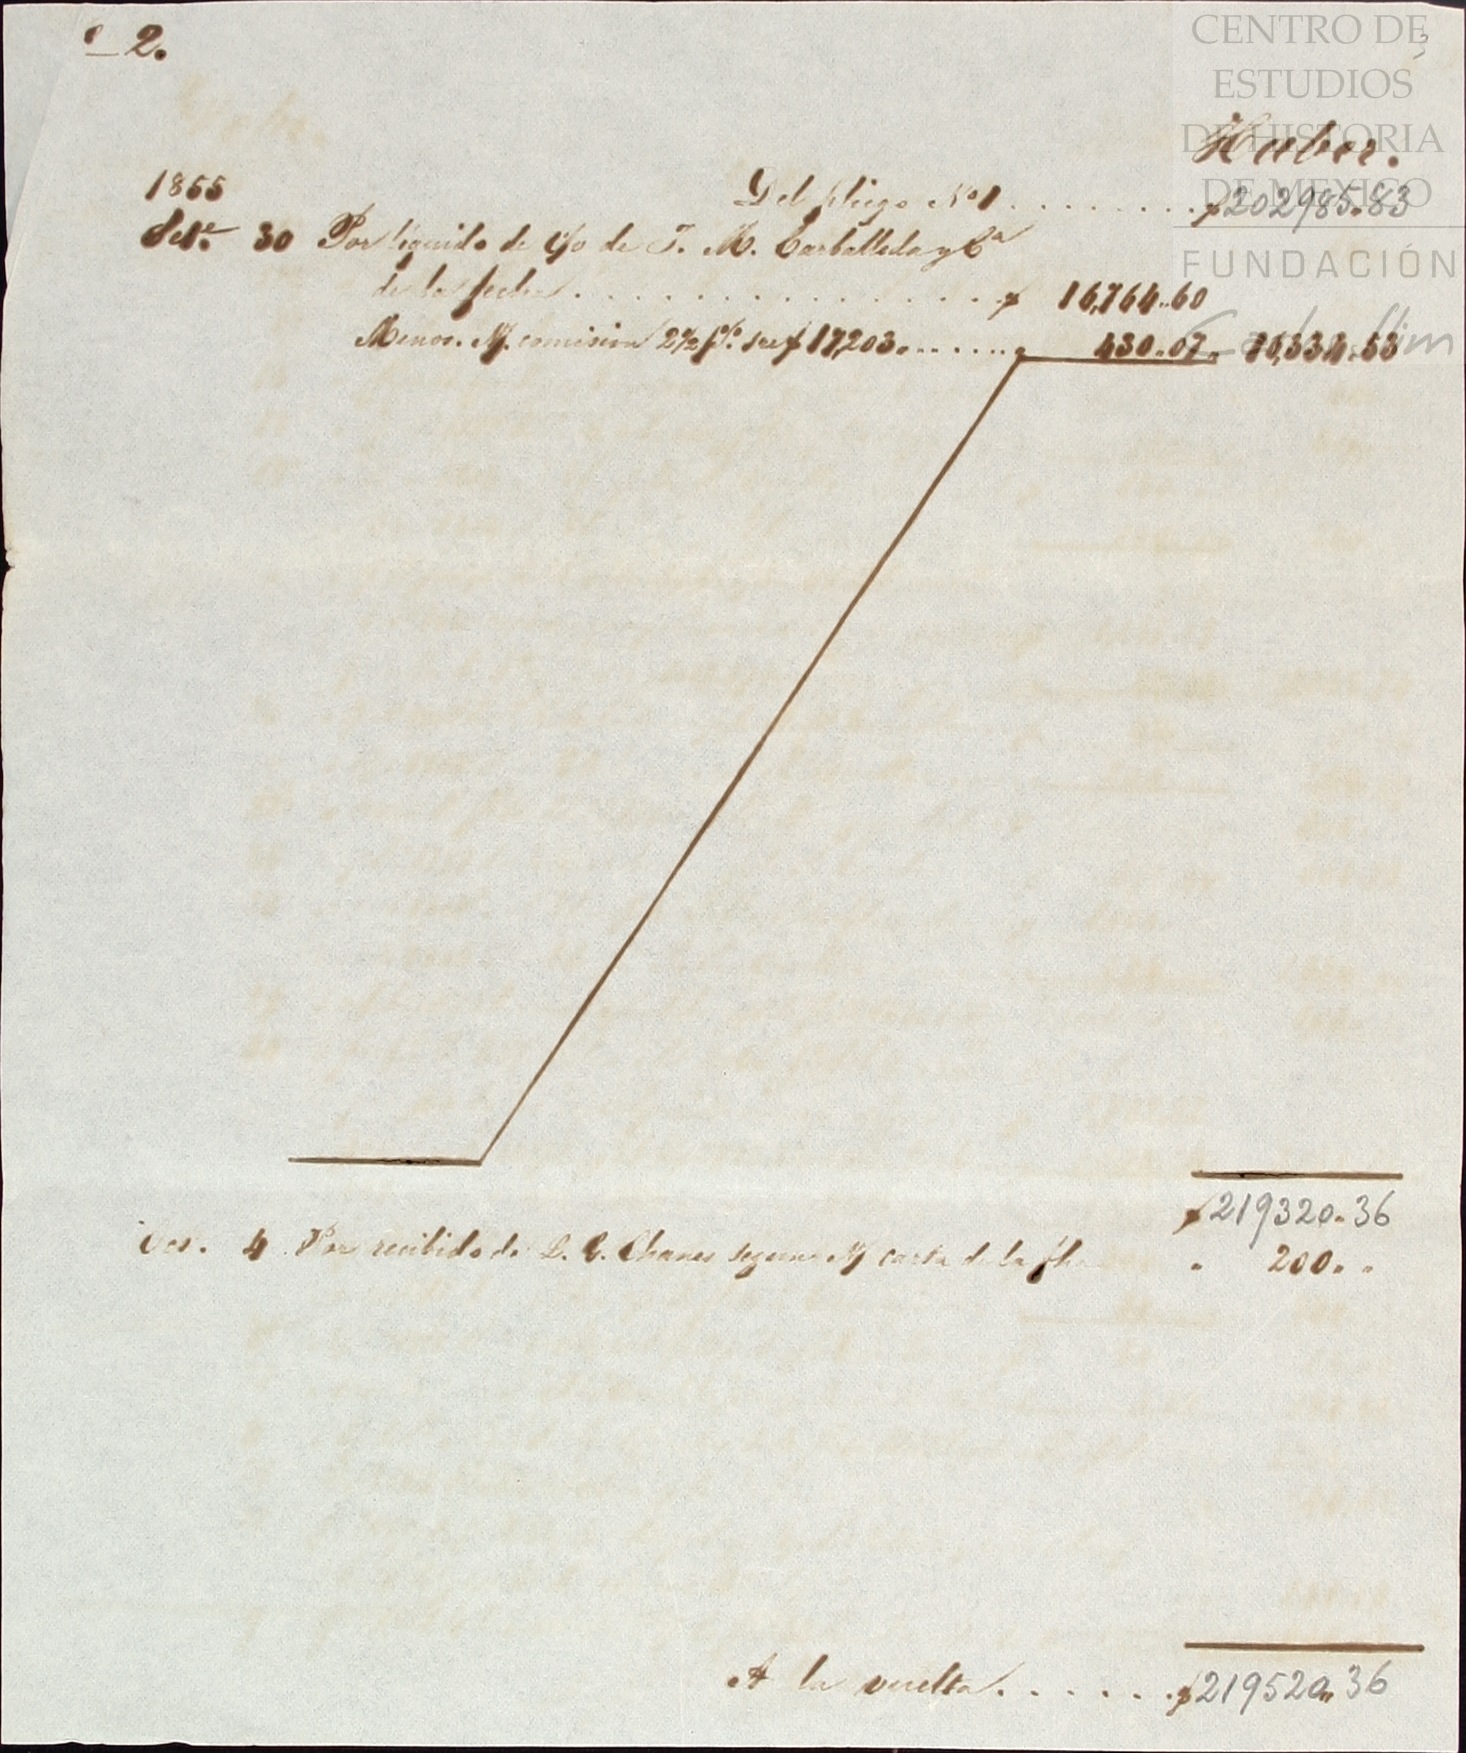 2.
CENTRO DE
ESTUDIOS
DE HISTORIA
DE MÉXICO
FUNDACIÓN
Carlos Slim
Haber.
1855
Del pliego No 1 . . . . . . . . $ 202985.83
Sete 30 Por líquido de c/o de J. M. Carballeda y Ca
de la fecha . . . . . . . . . . . . . . . $ 16,764.60
Menos. M/ comision 2 1/2 p% sre $ 17,203 . . . . . . . 430.07. 16,334.53
$ 219320.36
Oct. 4 Por recibido de L. G. Chanes segun M/ carta de la fha " 200. .
A la vuelta . . . . . . $ 219520.36